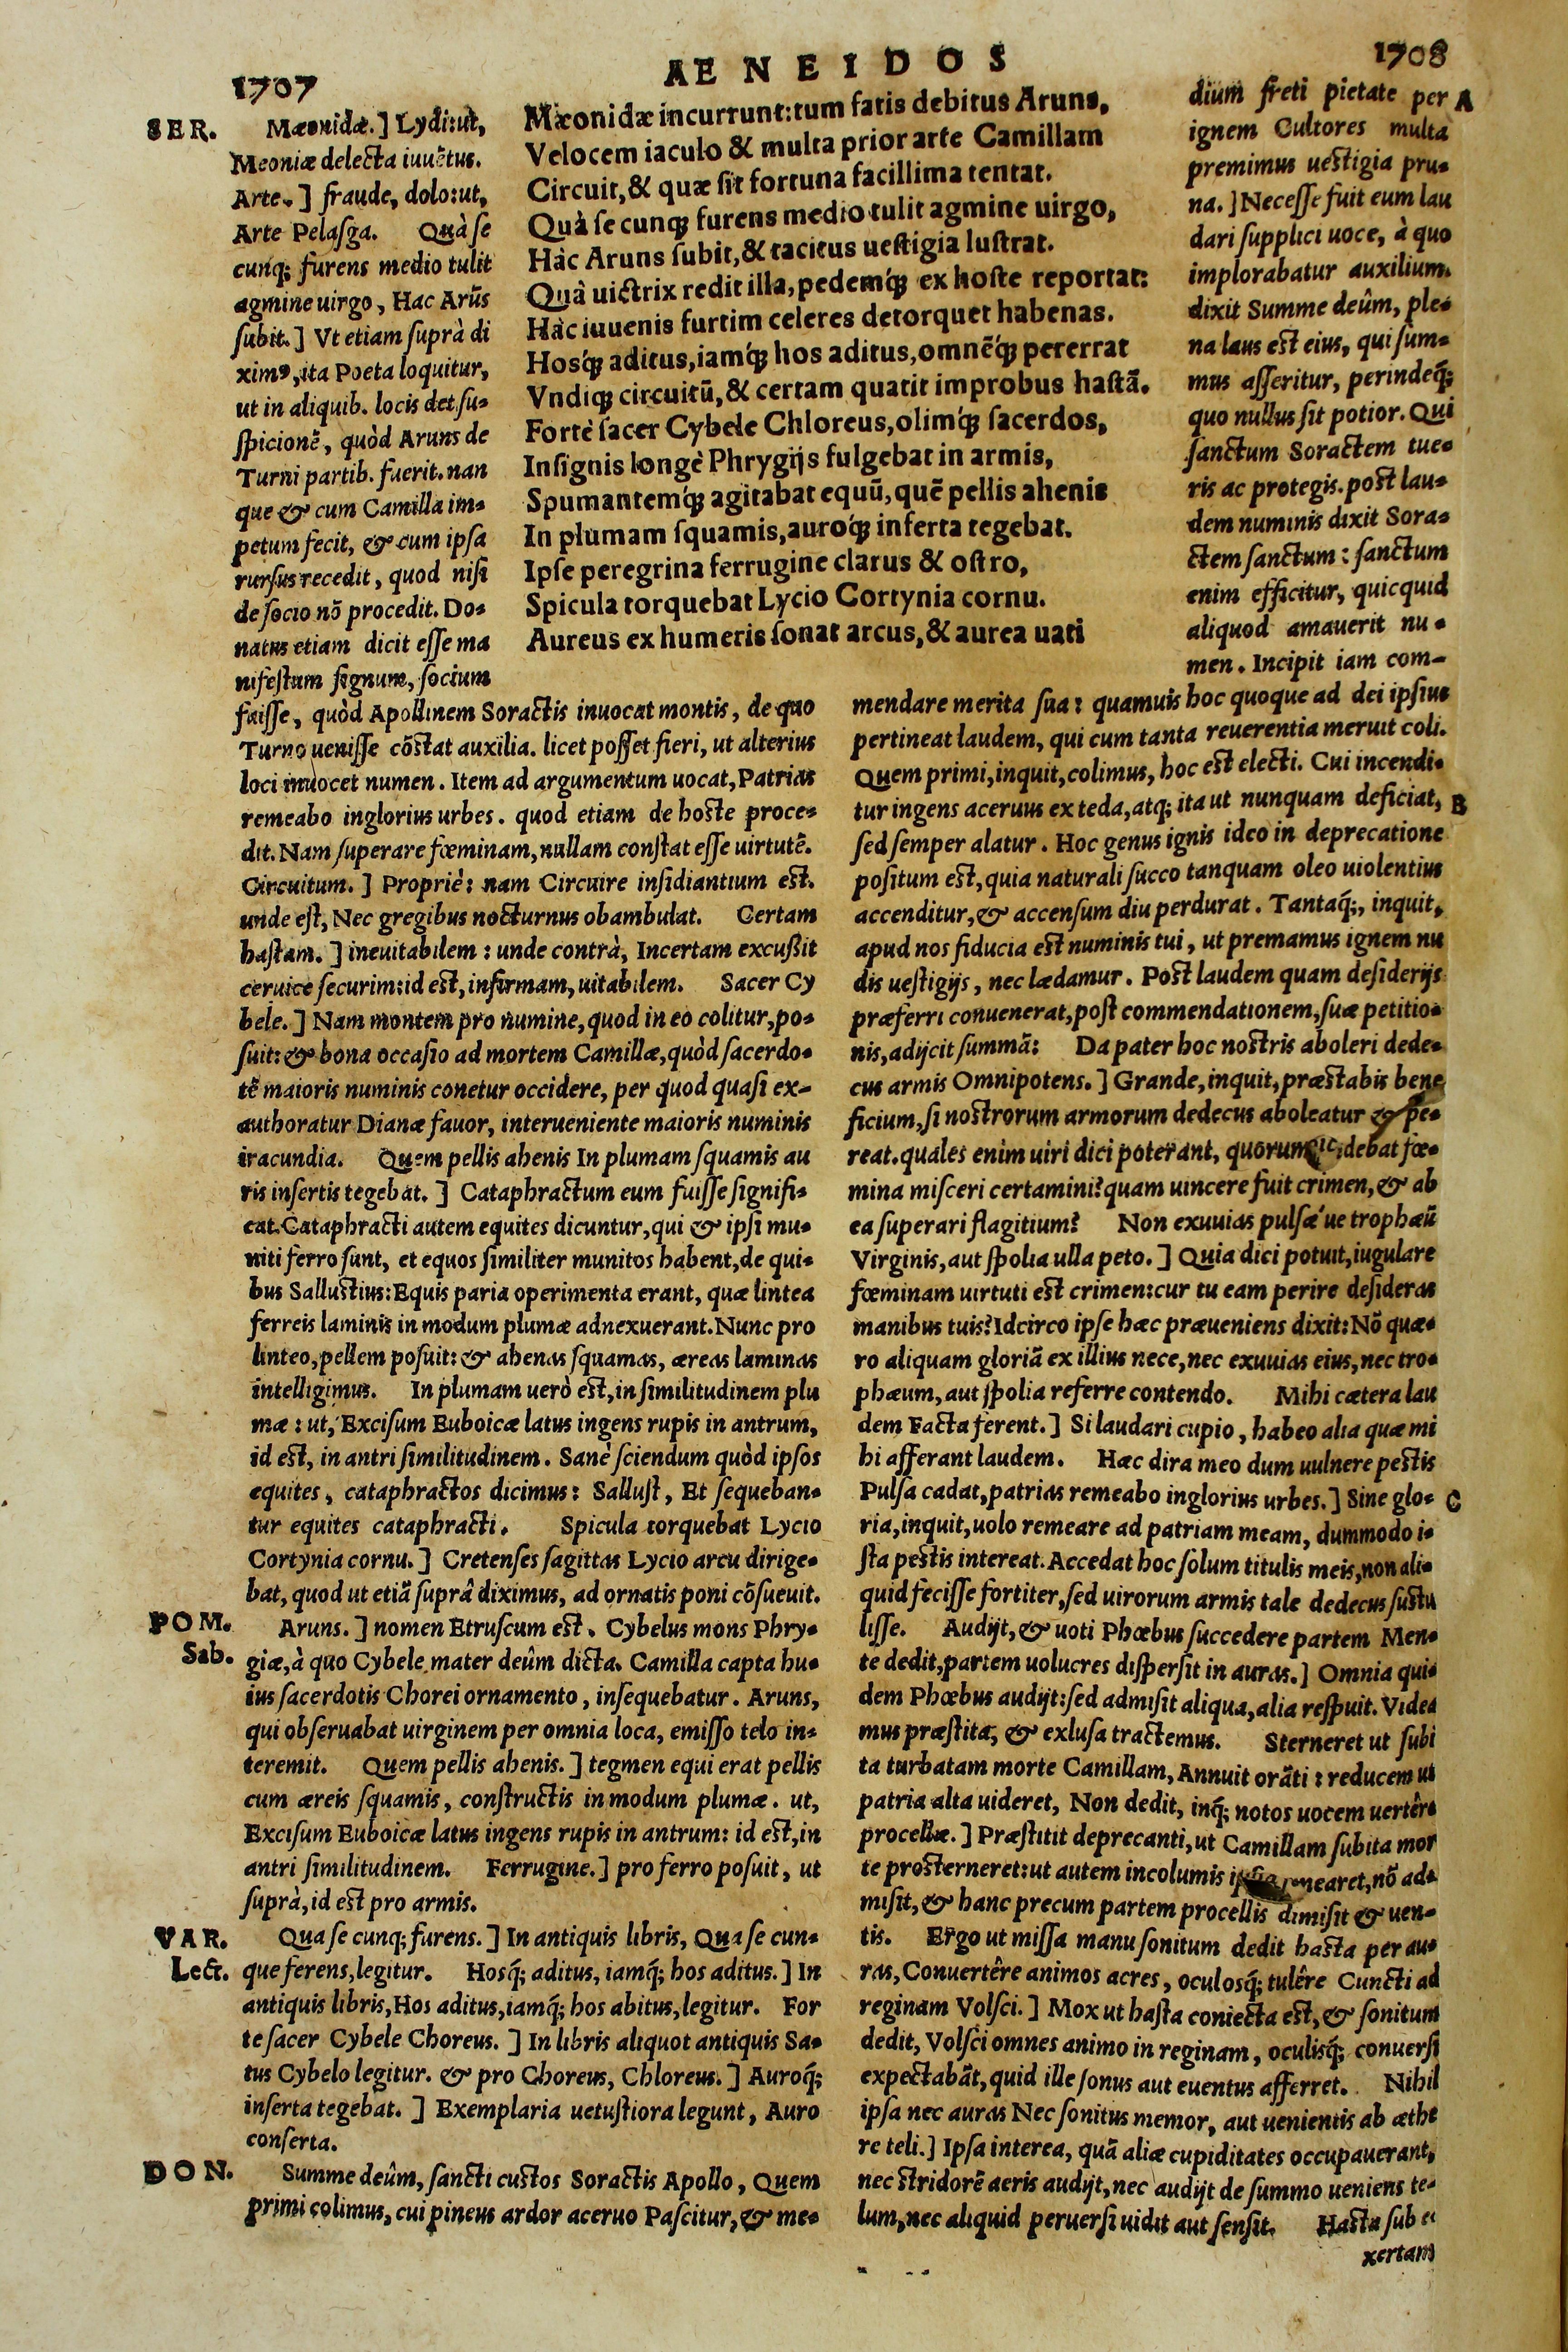 1707
AENEIDOS
1708
Mæonidæ incurrunt: tum fatis debitus Aruns,
Velocem iaculo & multa prior arte Camillam
Circuit, & quæ sit fortuna facillima tentat.
Quà se cunq; furens medio tulit agmine uirgo,
Hàc Aruns subit, & tacitus uestigia lustrat.
Quà uictrix redit illa, pedemq́; ex hoste reportat:
Hàc iuuenis furtim celeres detorquet habenas.
Hosq́; aditus, iamq́; hos aditus, omnēq́; pererrat
Vndiq; circuitū, & certam quatit improbus hastā.
Fortè sacer Cybele Chloreus, olimq́; sacerdos,
Insignis longè Phrygijs fulgebat in armis,
Spumantemq́; agitabat equū, quē pellis ahenis
In plumam squamis, auroq́; inserta tegebat.
Ipse peregrina ferrugine clarus & ostro,
Spicula torquebat Lycio Cortynia cornu.
Aureus ex humeris sonat arcus, & aurea uati
SER.
Mæonidæ.] Lydi: ut,
Meoniæ delecta iuuētus.
Arte.] fraude, dolo: ut,
Arte Pelasga. Quà se
cunq; furens medio tulit
agmine uirgo, Hac Arūs
subit.] Vt etiam suprà di
ximꝰ, ita Poeta loquitur,
ut in aliquib. locis det su-
spicionē, quòd Aruns de
Turni partib. fuerit. nan
que & cum Camilla im-
petum fecit, & cum ipsa
rursus recedit, quod nisi
de socio nō procedit. Do-
natus etiam dicit esse ma
nifestum signum, socium
faisse, quòd Apollinem Soractis inuocat montis, de quo
Turno uenisse cōstat auxilia. licet posset fieri, ut alterius
loci inuocet numen. Item ad argumentum uocat, Patrias
remeabo inglorius urbes. quod etiam de hoste proce-
dit. Nam superare fœminam, nullam constat esse uirtutē.
Circuitum.] Propriè: nam Circuire insidiantium est.
unde est, Nec gregibus nocturnus obambulat. Certam
hastam.] ineuitabilem: unde contrà, Incertam excußit
ceruice securim: id est, infirmam, uitabilem. Sacer Cy
bele.] Nam montem pro numine, quod in eo colitur, po-
suit: & bona occasio ad mortem Camillæ, quòd sacerdo-
tē maioris numinis conetur occidere, per quod quasi ex-
authoratur Dianæ fauor, interueniente maioris numinis
iracundia. Quem pellis ahenis In plumam squamis au
ris insertis tegebat.] Cataphractum eum fuisse signifi-
cat. Cataphracti autem equites dicuntur, qui & ipsi mu-
niti ferro sunt, et equos similiter munitos habent, de qui-
bus Sallustius: Equis paria operimenta erant, quæ lintea
ferreis laminis in modum plumæ adnexuerant. Nunc pro
linteo, pellem posuit: & ahenas squamas, æreas laminas
intelligimus. In plumam uerò est, in similitudinem plu
mæ: ut, Excisum Euboicæ latus ingens rupis in antrum,
id est, in antri similitudinem. Sanè sciendum quòd ipsos
equites, cataphractos dicimus: Sallust, Et sequeban-
tur equites cataphracti. Spicula torquebat Lycio
Cortynia cornu.] Cretenses sagittas Lycio arcu dirige-
bat, quod ut etiā suprâ diximus, ad ornatis poni cōsueuit.
POM.
Sab.
Aruns.] nomen Etruscum est. Cybelus mons Phry-
giæ, à quo Cybele mater deûm dicta. Camilla capta hu-
ius sacerdotis Chorei ornamento, insequebatur. Aruns,
qui obseruabat uirginem per omnia loca, emisso telo in-
teremit. Quem pellis ahenis.] tegmen equi erat pellis
cum æreis squamis, constructis in modum plumæ. ut,
Excisum Euboicæ latus ingens rupis in antrum: id est, in
antri similitudinem. Ferrugine.] pro ferro posuit, ut
suprà, id est pro armis.
VAR.
Lect.
Qua se cunq; furens.] In antiquis libris, Qua se cun-
que ferens, legitur. Hosq́; aditus, iamq́; hos aditus.] In
antiquis libris, Hos aditus, iamq́; hos abitus, legitur. For
te sacer Cybele Choreus.] In libris aliquot antiquis Sa-
tus Cybelo legitur. & pro Choreus, Chloreus.] Auroq́;
inserta tegebat.] Exemplaria uetustiora legunt, Auro
conserta.
DON.
Summe deûm, sancti custos Soractis Apollo, Quem
primi colimus, cui pineus ardor aceruo Pascitur, & me-
dium freti pietate per A
ignem Cultores multa
premimus uestigia pru-
na.] Necesse fuit eum lau
dari supplici uoce, à quo
implorabatur auxilium.
dixit Summe deûm, ple-
na laus est eius, qui sum-
mus asseritur, perindeq́;
quo nullus sit potior. Qui
sanctum Soractem tue-
ris ac protegis. post lau-
dem numinis dixit Sora-
ctem sanctum: sanctum
enim efficitur, quicquid
aliquod amauerit nu-
men. Incipit iam com-
mendare merita sua: quamuis hoc quoque ad dei ipsius
pertineat laudem, qui cum tanta reuerentia meruit coli.
Quem primi, inquit, colimus, hoc est electi. Cui incendi-
tur ingens aceruus ex teda, atq; ita ut nunquam deficiat, B
sed semper alatur. Hoc genus ignis ideo in deprecatione
positum est, quia naturali succo tanquam oleo uiolentius
accenditur, & accensum diu perdurat. Tantaq́;, inquit,
apud nos fiducia est numinis tui, ut premamus ignem nu
dis uestigijs, nec lædamur. Post laudem quam desiderijs
præferri conuenerat, post commendationem, suæ petitio-
nis, adijcit summā: Da pater hoc nostris aboleri dede-
cus armis Omnipotens.] Grande, inquit, præstabis bene
ficium, si nostrorum armorum dedecus aboleatur & pe-
reat. quales enim uiri dici poterant, quorum debat fœ-
mina misceri certamini? quam uincere fuit crimen, & ab
ea superari flagitium? Non exuuias pulsæ'ue trophæū
Virginis, aut spolia ulla peto.] Quia dici potuit, iugulare
fœminam uirtuti est crimen: cur tu eam perire desideras
manibus tuis? Idcirco ipse hæc præueniens dixit: Nō quæ-
ro aliquam gloriā ex illius nece, nec exuuias eius, nec tro-
phæum, aut spolia referre contendo. Mihi cætera lau
dem Facta ferent.] Si laudari cupio, habeo alia quæ mi
hi afferant laudem. Hæc dira meo dum uulnere pestis
Pulsa cadat, patrias remeabo inglorius urbes.] Sine glo- C
ria, inquit, uolo remeare ad patriam meam, dummodo i-
sta pestis intereat. Accedat hoc solum titulis meis, non ali-
quid fecisse fortiter, sed uirorum armis tale dedecus sustu
lisse. Audijt, & uoti Phœbus succedere partem Men-
te dedit, partem uolucres dispersit in auras.] Omnia qui-
dem Phœbus audijt: sed admisit aliqua, alia respuit. Videa
mus præstita, & exlusa tractemus. Sterneret ut subi
ta turbatam morte Camillam, Annuit orāti: reducem ut
patria alta uideret, Non dedit, inq́; notos uocem uertêre
procellæ.] Præstitit deprecanti, ut Camillam subita mor
te prosterneret: ut autem incolumis nō ad-
misit, & hanc precum partem procellis dimisit & uen-
tis. Ergo ut missa manu sonitum dedit hasta per au-
ras, Conuertêre animos acres, oculosq́; tulêre Cuncti ad
reginam Volsci.] Mox ut hasta coniecta est, & sonitum
dedit, Volsci omnes animo in reginam, oculisq́; conuersi
expectabāt, quid ille sonus aut euentus afferret. Nihil
ipsa nec auras Nec sonitus memor, aut uenientis ab æthe
re teli.] Ipsa interea, quā aliæ cupiditates occupauerant,
nec stridorē aeris audijt, nec audijt de summo ueniens te-
lum, nec aliquid peruersi uidit aut sensit. Hasta sub e
xertam